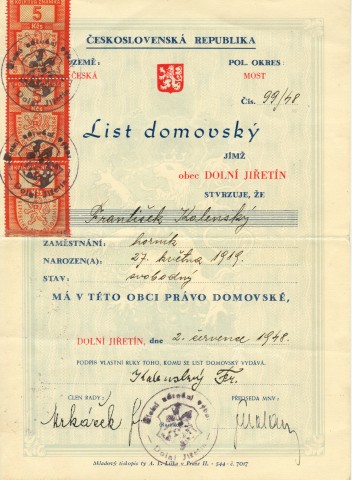 ČESKOSLOVENSKÁ REPUBLIKA
ZEMĚ: POL. OKRES:
ČESKÁ MOST
Čís. 99/48
List domovský
JÍMŽ
obec DOLNÍ JIŘETÍN
STVRZUJE, ŽE
František Kalenský
ZAMĚSTNÁNÍ: horník
NAROZEN(A): 27. května 1919.
STAV: svobodný
MÁ V TÉTO OBCI PRÁVO DOMOVSKÉ,
DOLNÍ JIŘETÍN, dne 2. července 1948.
PODPIS VLASTNÍ RUKY TOHO, KOMU SE LIST DOMOVSKÝ VYDÁVÁ.
Kalenský Fr.
ČLEN RADY: PŘEDSEDA MNV:
Mrkáček
Místní národní výbor
Dolní Jiřetín
5
Kčs